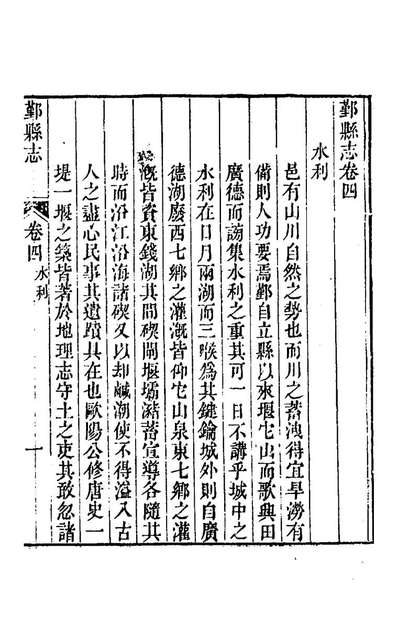 鄞縣志卷四
水利
邑有山川自然之勢也而川之蓄洩得宜旱澇有
備則人功要焉鄞自立縣以來堰它山而歌興田
廣德而謗集水利之重其可一日不講乎城中之
水利在日月兩湖而三喉為其鍵鑰城外則自廣
德湖廢西七鄉之灌溉皆仰它山泉東七鄉之灌
溉皆資東錢湖其間碶閘堰壩瀦蓄宣導各隨其
時而沿江沿海諸碶又以却鹹潮使不得溢入古
人之盡心民事其遺蹟具在也歐陽公修唐史一
堤一堰之築皆著於地理志守土之吏其敢忽諸
鄞縣志
卷四
水利
一